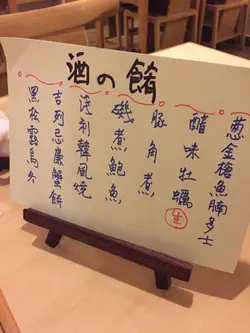 酒の餚
葱金槍魚腩多士
醋味牡蠣 生
豚角煮
磯煮鮑魚
浅利韓風燒
吉列忌廉蟹餅
黑松露烏冬